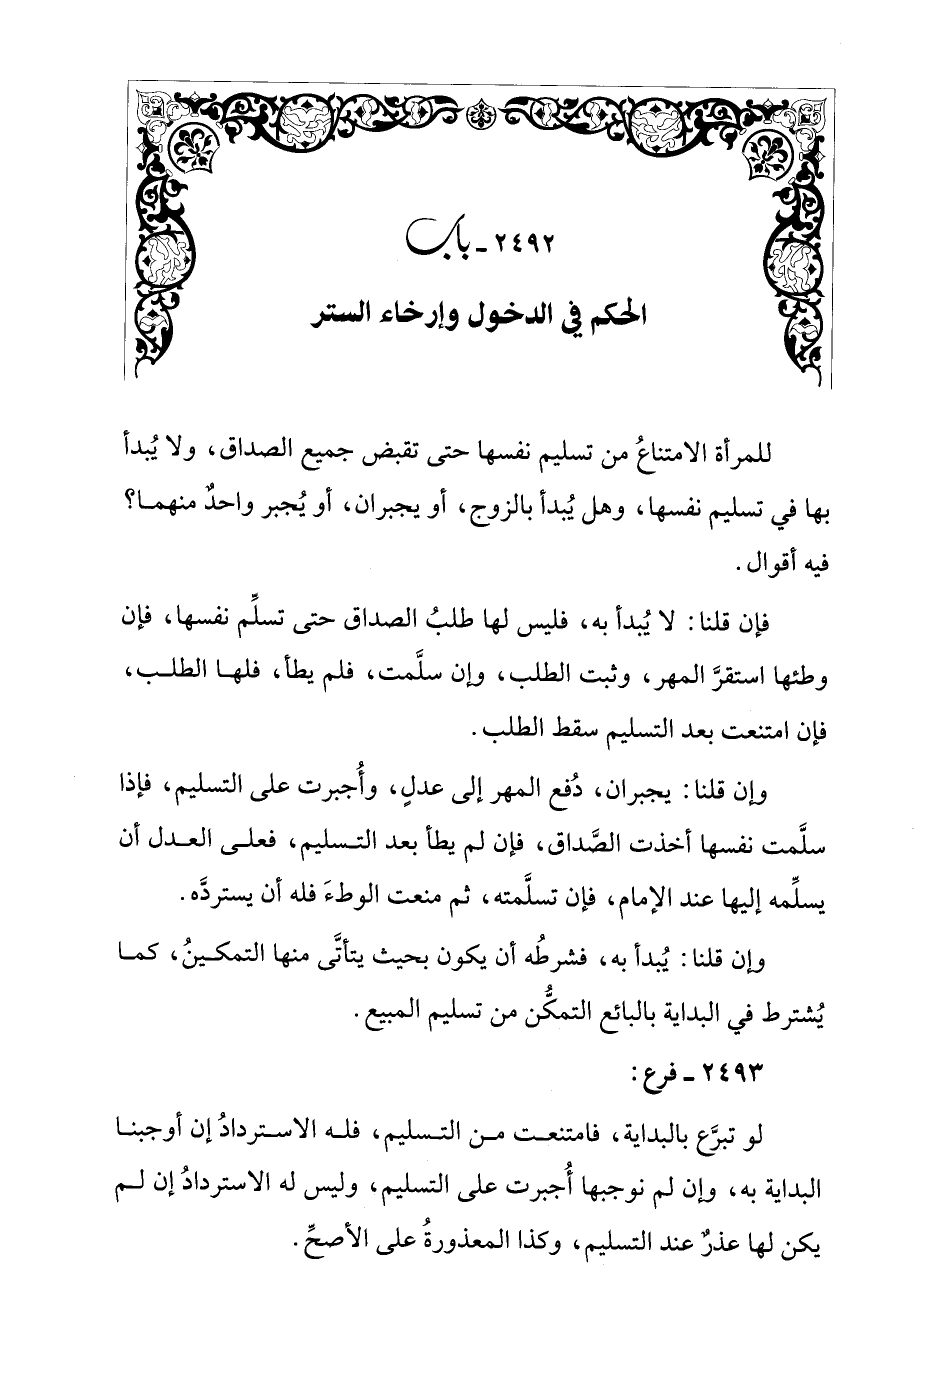 ٢٤٩٢ - باب
الحكم في الدخول وإرخاء الستر
للمرأة الامتناعُ من تسليم نفسها حتى تقبض جميع الصداق، ولا يُبدأ
بها في تسليم نفسها، وهل يُبدأ بالزوج، أو يجبران، أو يُجبر واحدٌ منهما؟
فيه أقوال.
فإن قلنا: لا يُبدأ به، فليس لها طلبُ الصداق حتى تسلِّم نفسها، فإن
وطئها استقرَّ المهر، وثبت الطلب، وإن سلَّمت، فلم يطأ، فلها الطلب،
فإن امتنعت بعد التسليم سقط الطلب.
وإن قلنا: يجبران، دُفع المهر إلى عدلٍ، وأُجبرت على التسليم، فإذا
سلَّمت نفسها أخذت الصَّداق، فإن لم يطأ بعد التسليم، فعلى العدل أن
يسلِّمه إليها عند الإمام، فإن تسلَّمته، ثم منعت الوطءَ فله أن يستردَّه.
وإن قلنا: يُبدأ به، فشرطُه أن يكون بحيث يتأتَّى منها التمكينُ، كما
يُشترط في البداية بالبائع التمكُّن من تسليم المبيع.
٢٤٩٣ - فرع:
لو تبرَّع بالبداية، فامتنعت من التسليم، فله الاستردادُ إن أوجبنا
البداية به، وإن لم نوجبها أُجبرت على التسليم، وليس له الاستردادُ إن لم
يكن لها عذرٌ عند التسليم، وكذا المعذورةُ على الأصحِّ.